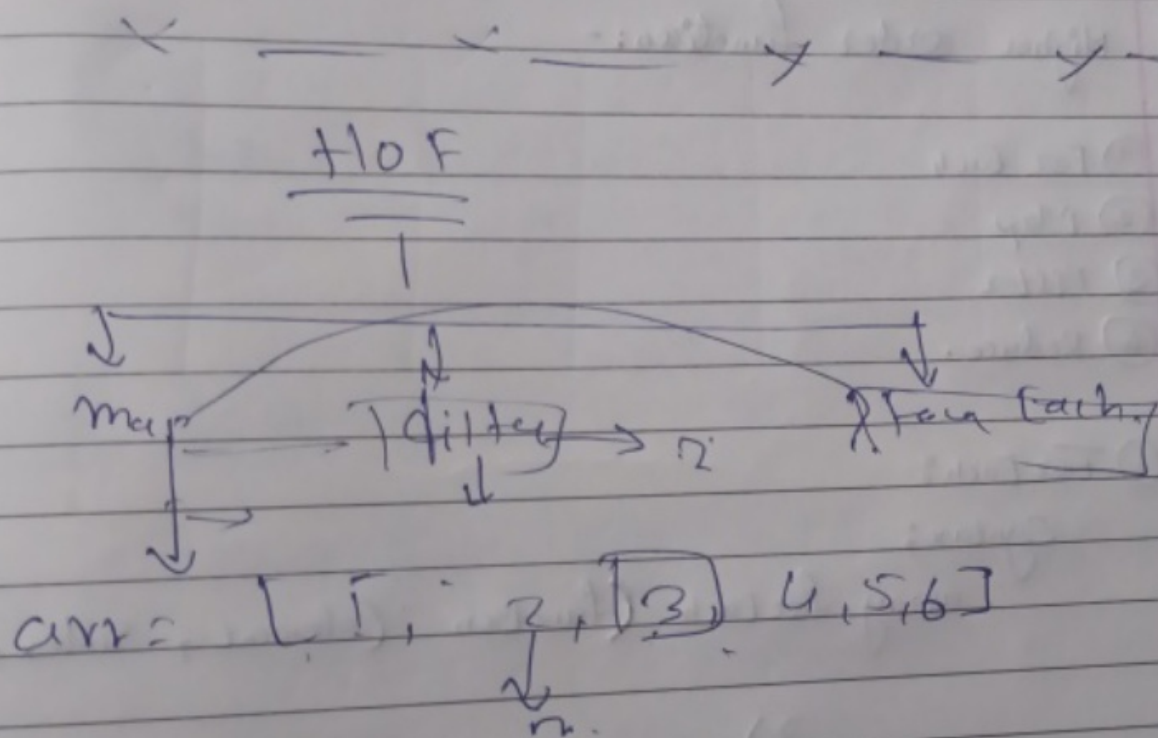 HOF
map filter For Each
arr = [1, 2, 3, 4, 5, 6]
n